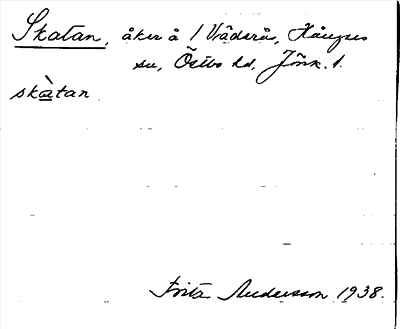 Skatan, åker å 1 Väderås, Hånger
sn, Östbo hd, Jönk. l.
skàtan
Frits Andersson 1938.